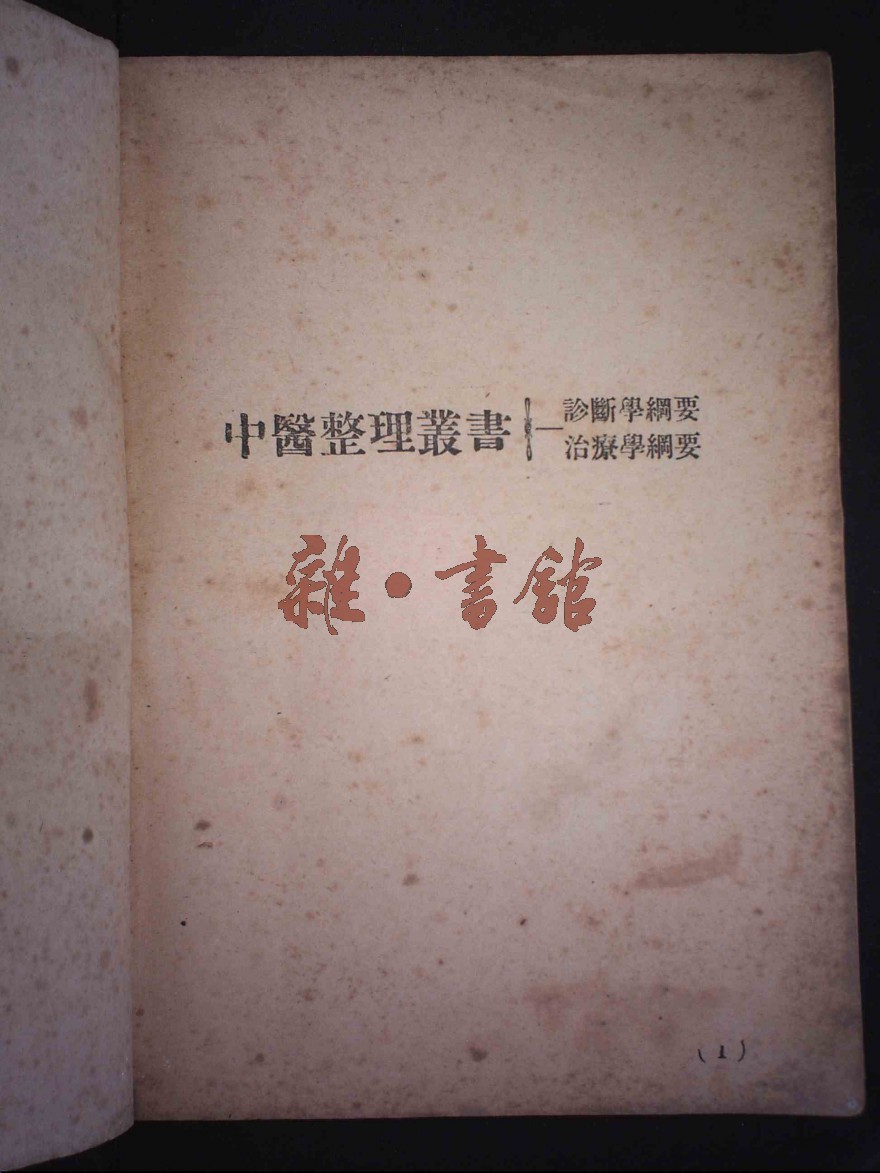 中醫整理叢書
一診斷學綱要
治療學綱要
雜·書館
(1)